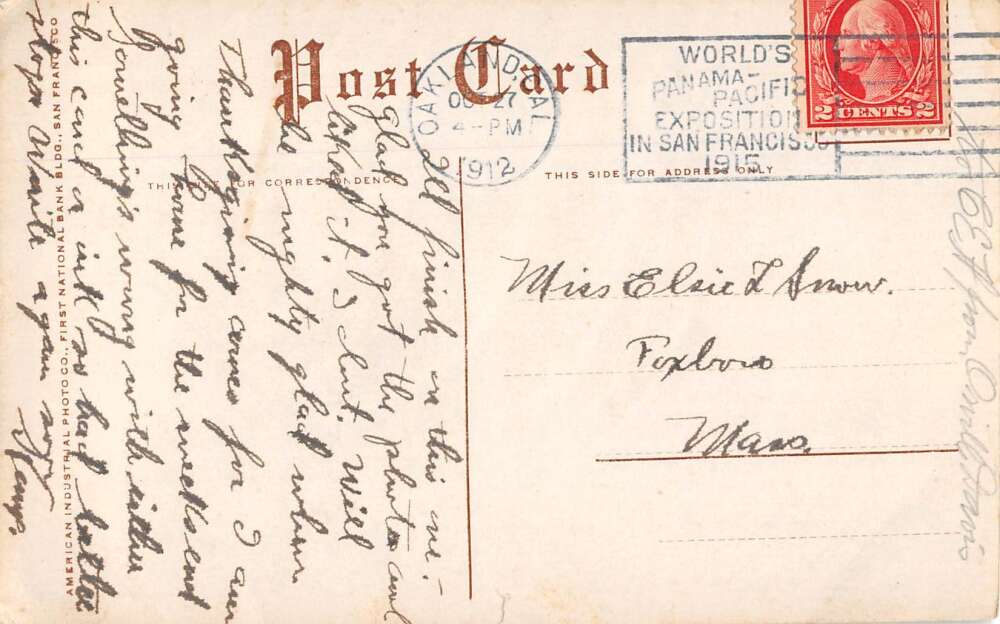 Post Card
THIS SIDE FOR CORRESPONDENCE
THIS SIDE FOR ADDRESS ONLY
OAKLAND, CAL
OC 27
4-PM
1912
WORLD'S
PANAMA-
PACIFIC
EXPOSITION
IN SAN FRANCISCO
1915
2 CENTS 2
Miss Elsie L Snow.
Foxboro
Mass.
I'll finish on this one.-
Glad you got the photo and
liked it. I don't. Will
be mighty glad when
Thanksgiving comes for I am
going home for the weeks end
Something's wrong with either
this card or ink so had better
stop. Write again soon
AMERICAN INDUSTRIAL PHOTO CO., FIRST NATIONAL BANK BLDG., SAN FRANCISCO
from